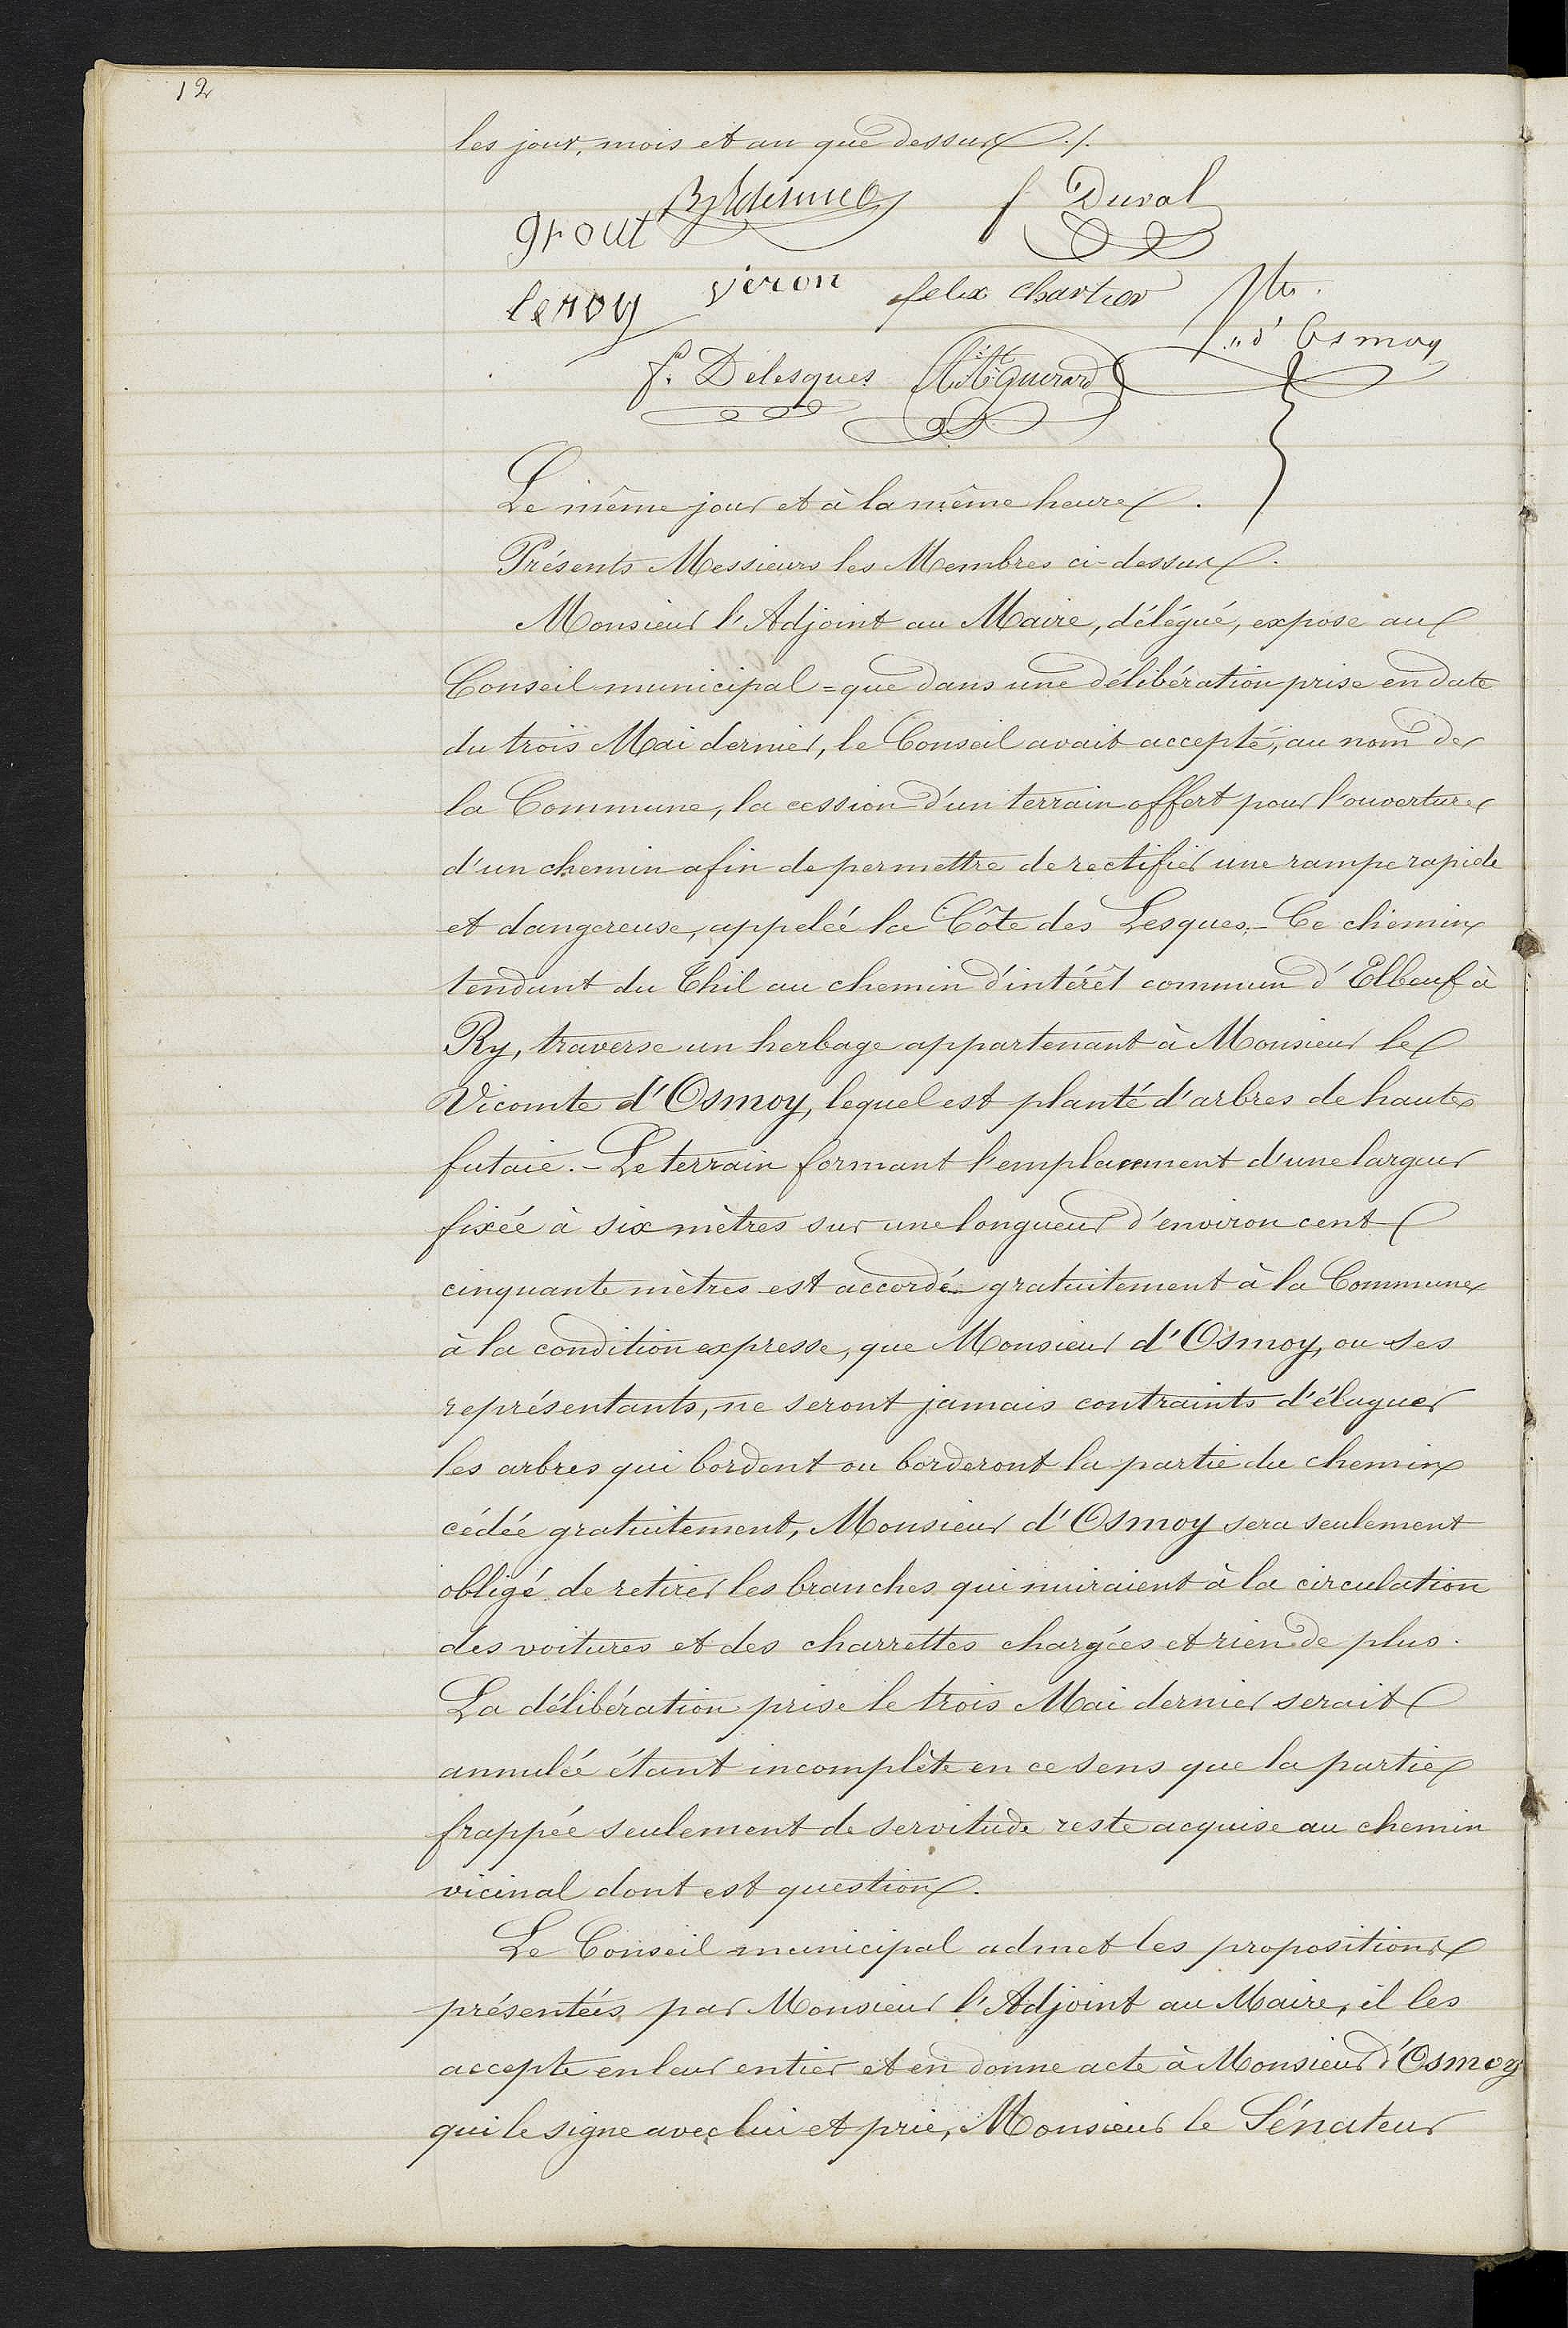 12
les jour, mois et an que dessus ./.
grout f Duval
leroy veron felix chartier Vte
d'Osmoy
f. Delesques Guerard
Le même jour et à la même heure.
Présents Messieurs les Membres ci-dessus.
Monsieur l'Adjoint au Maire, délégué, expose au
Conseil municipal = que dans une délibération prise en date
du trois Mai dernier, le Conseil avait accepté, au nom de
la Commune, la cession d'un terrain offert pour l'ouverture
d'un chemin afin de permettre de rectifier une rampe rapide
et dangereuse, appelée la Côte des Lesques. - Ce chemin
tendant du Thil au chemin d'intérêt commun d'Elbeuf à
Ry, traverse un herbage appartenant à Monsieur le
Vicomte d'Osmoy, lequel est planté d'arbres de haute
futaie. - Le terrain formant l'emplacement d'une largeur
fixée à six mètres sur une longueur d'environ cent
cinquante mètres est accordé gratuitement à la Commune
à la condition expresse, que Monsieur d'Osmoy, ou ses
représentants, ne seront jamais contraints d'élaguer
les arbres qui bordent ou borderont la partie du chemin
cédée gratuitement, Monsieur d'Osmoy sera seulement
obligé de retirer les branches qui nuiraient à la circulation
des voitures et des charrettes chargées et rien de plus.
La délibération prise le trois Mai dernier serait
annulée étant incomplète en ce sens que la partie
frappée seulement de servitude reste acquise au chemin
vicinal dont est question.
Le Conseil municipal admet les propositions
présentées par Monsieur l'Adjoint au Maire, il les
accepte en leur entier et en donne acte à Monsieur d'Osmoy
qui le signe avec lui et prie, Monsieur le Sénateur